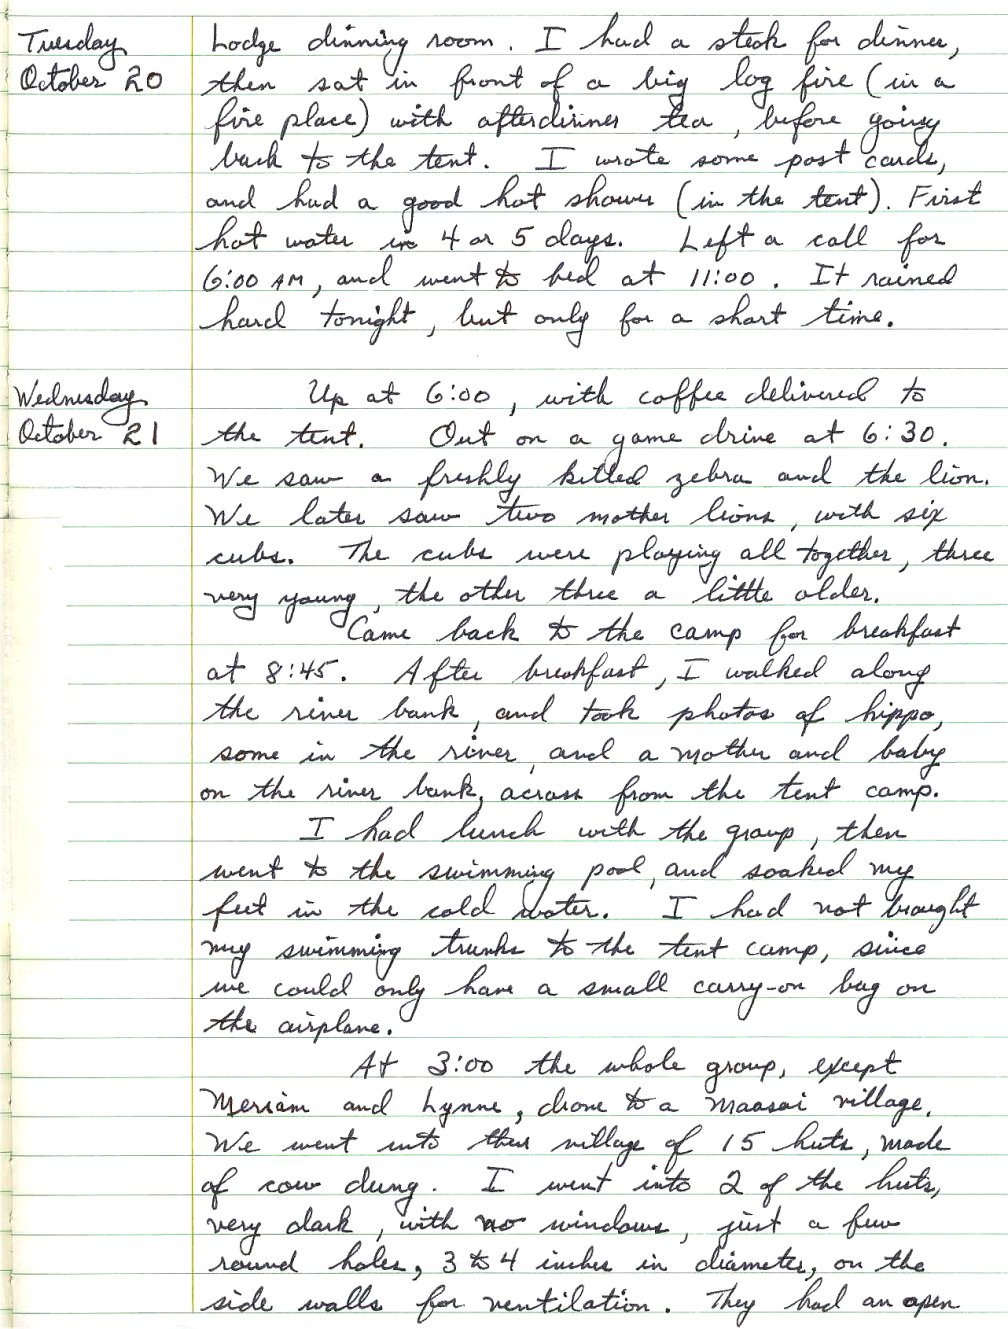 Tuesday
October 20
Lodge dinning room. I had a steak for dinner,
then sat in front of a big log fire (in a
fire place) with afterdinner tea, before going
back to the tent. I wrote some post cards,
and had a good hot shower (in the tent). First
hot water in 4 or 5 days. Left a call for
6:00 AM, and went to bed at 11:00. It rained
hard tonight, but only for a short time.
Wednesday
October 21
Up at 6:00, with coffee delivered to
the tent. Out on a game drive at 6:30.
We saw a freshly killed zebra and the lion.
We later saw two mother lions, with six
cubs. The cubs were playing all together, three
very young, the other three a little older.
Came back to the camp for breakfast
at 8:45. After breakfast, I walked along
the river bank, and took photos of hippo,
some in the river, and a mother and baby
on the river bank, across from the tent camp.
I had lunch with the group, then
went to the swimming pool, and soaked my
feet in the cold water. I had not brought
my swimming trunks to the tent camp, since
we could only have a small carry-on bag on
the airplane.
At 3:00 the whole group, except
Meriam and Lynne, drove to a Maasai village.
We went into their village of 15 huts, made
of cow dung. I went into 2 of the huts,
very dark, with no windows, just a few
round holes, 3 to 4 inches in diameter, on the
side walls for ventilation. They had an open